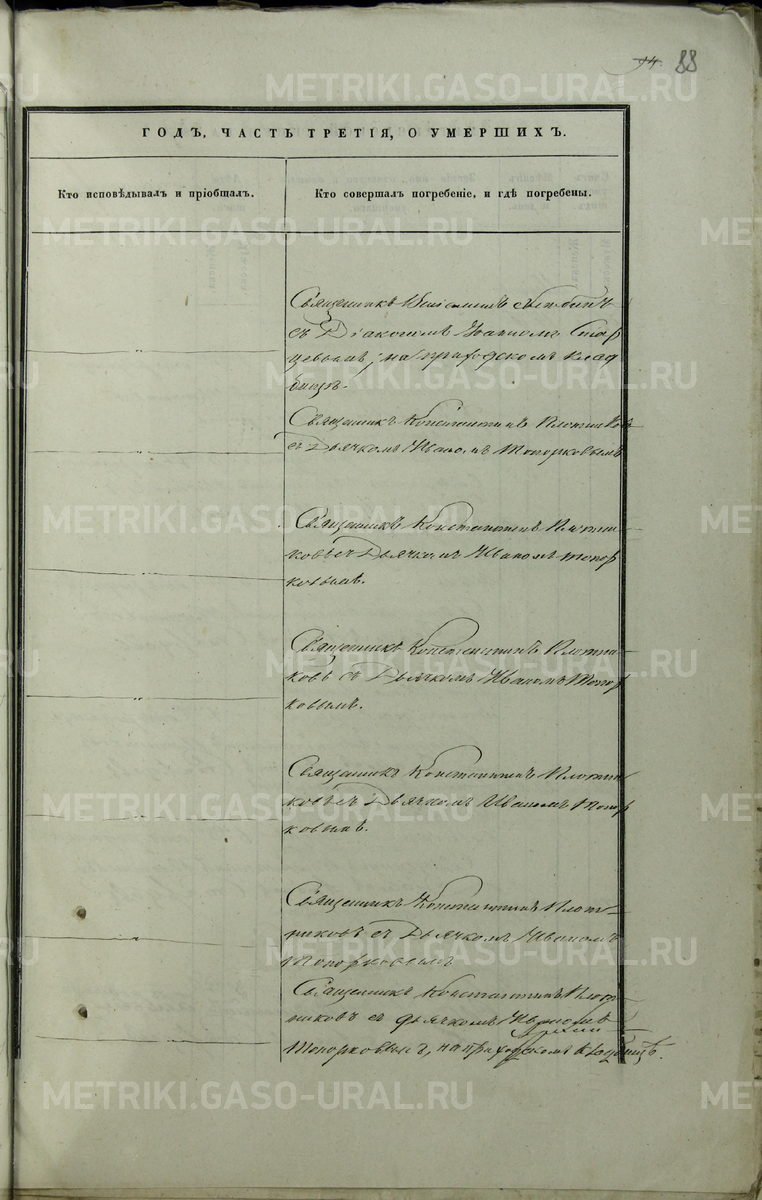 94. 88
METRIKI.GASO-URAL.RU
ГОДЪ, ЧАСТЬ ТРЕТІЯ, О УМЕРШИХЪ.
Кто исповѣдывалъ и пріобщалъ.
Кто совершалъ погребеніе, и гдѣ погребены.
Священникъ
съ Діакономъ Іваномъ Стар
цевымъ, на приходскомъ клад
бищѣ.
Священникъ Константинъ Плотников
съ Дьячкомъ Иваномъ Топорковымъ
Священникъ Константинъ Плотни
ковъ съ Дьячкомъ Иваномъ Топор
ковымъ.
Священникъ Константинъ Плотни
ковъ съ Дьячкомъ Иваномъ Топор
ковымъ.
Священникъ Константинъ Плотни
ковъ съ Дьячкомъ Иваномъ Топор
ковымъ.
Священникъ Константинъ Плот
никовъ съ Дьячкомъ Иваномъ
Топорковымъ
Священникъ Константинъ Плот
никовъ съ дьячкомъ Иваномъ
Топорковымъ, на приходскомъ кладбищѣ.